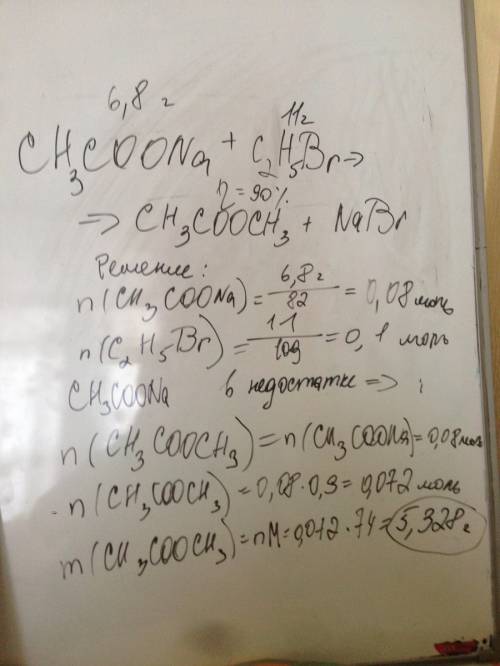 6,8 г
11г
CH₃COONa + C₂H₅Br →
η = 90%
⇒ CH₃COOCH₃ + NaBr
Решение:
n(CH₃COONa) = 6,8 г / 82 = 0,08 моль
n(C₂H₅Br) = 11 / 109 = 0,1 моль
CH₃COONa в недостатке ⇒
n(CH₃COOCH₃) = n(CH₃COONa) = 0,08 моль
n(CH₃COOCH₃) = 0,08 · 0,9 = 0,072 моль
m(CH₃COOCH₃) = nM = 0,072 · 74 = 5,328 г